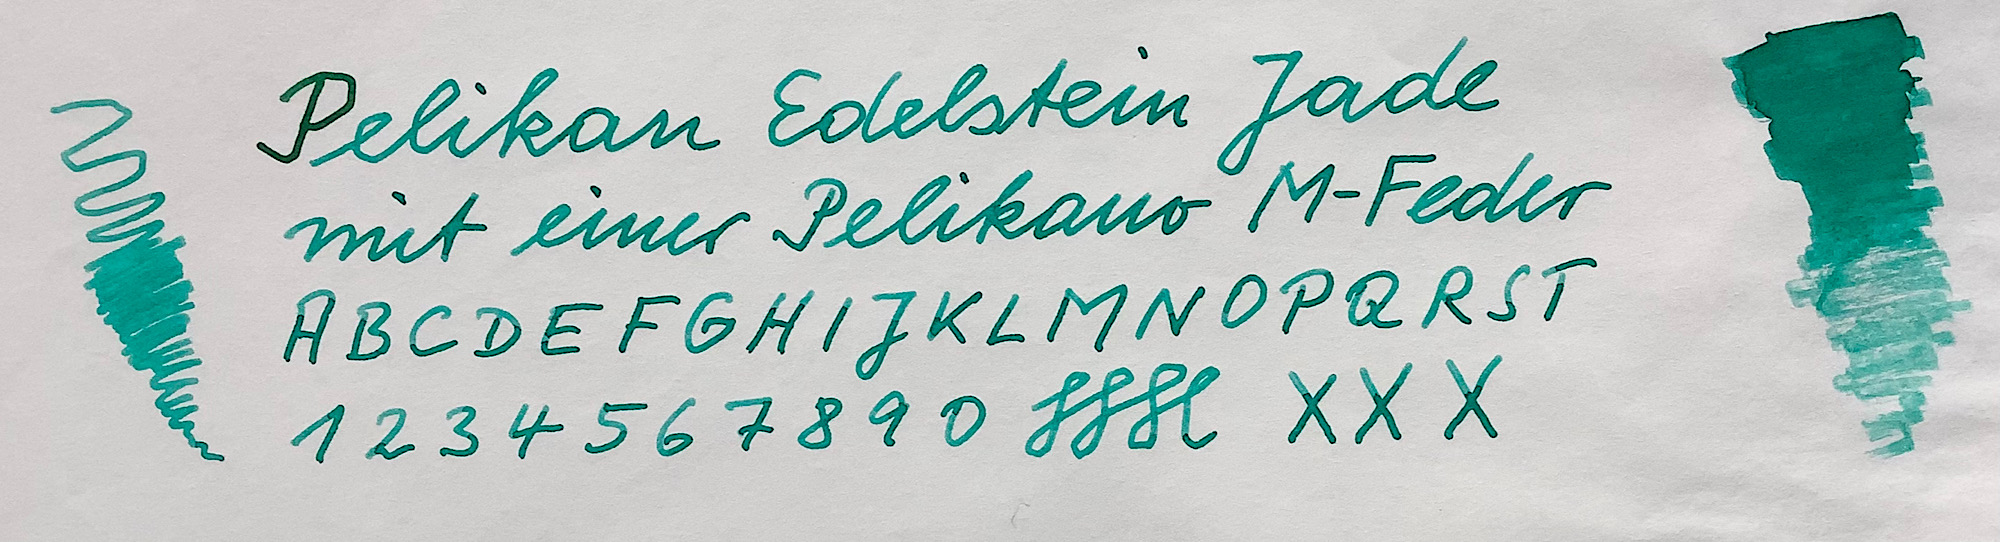 Pelikan Edelstein Jade
mit einer Pelikano M-Feder
ABCDEFGHIJKLMNOPQRST
1234567890 XXX